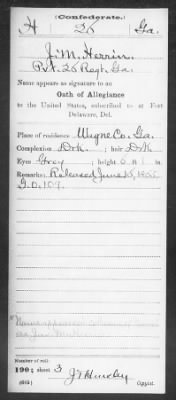 (Confederate.)
H 26 Ga.
J. M. Herrin
Pvt. 26 Regt. Ga.
Name appears as signature to an
Oath of Allegiance
to the United States, subscribed to at Fort
Delaware, Del.
Place of residence Wayne Co. Ga.
Complexion Drk.; hair Drk
Eyes Grey; height 6 ft. 1 in.
Remarks: Released June 15, 1865
G.O. 109.
Number of roll:
190; sheet 3 Copyist.